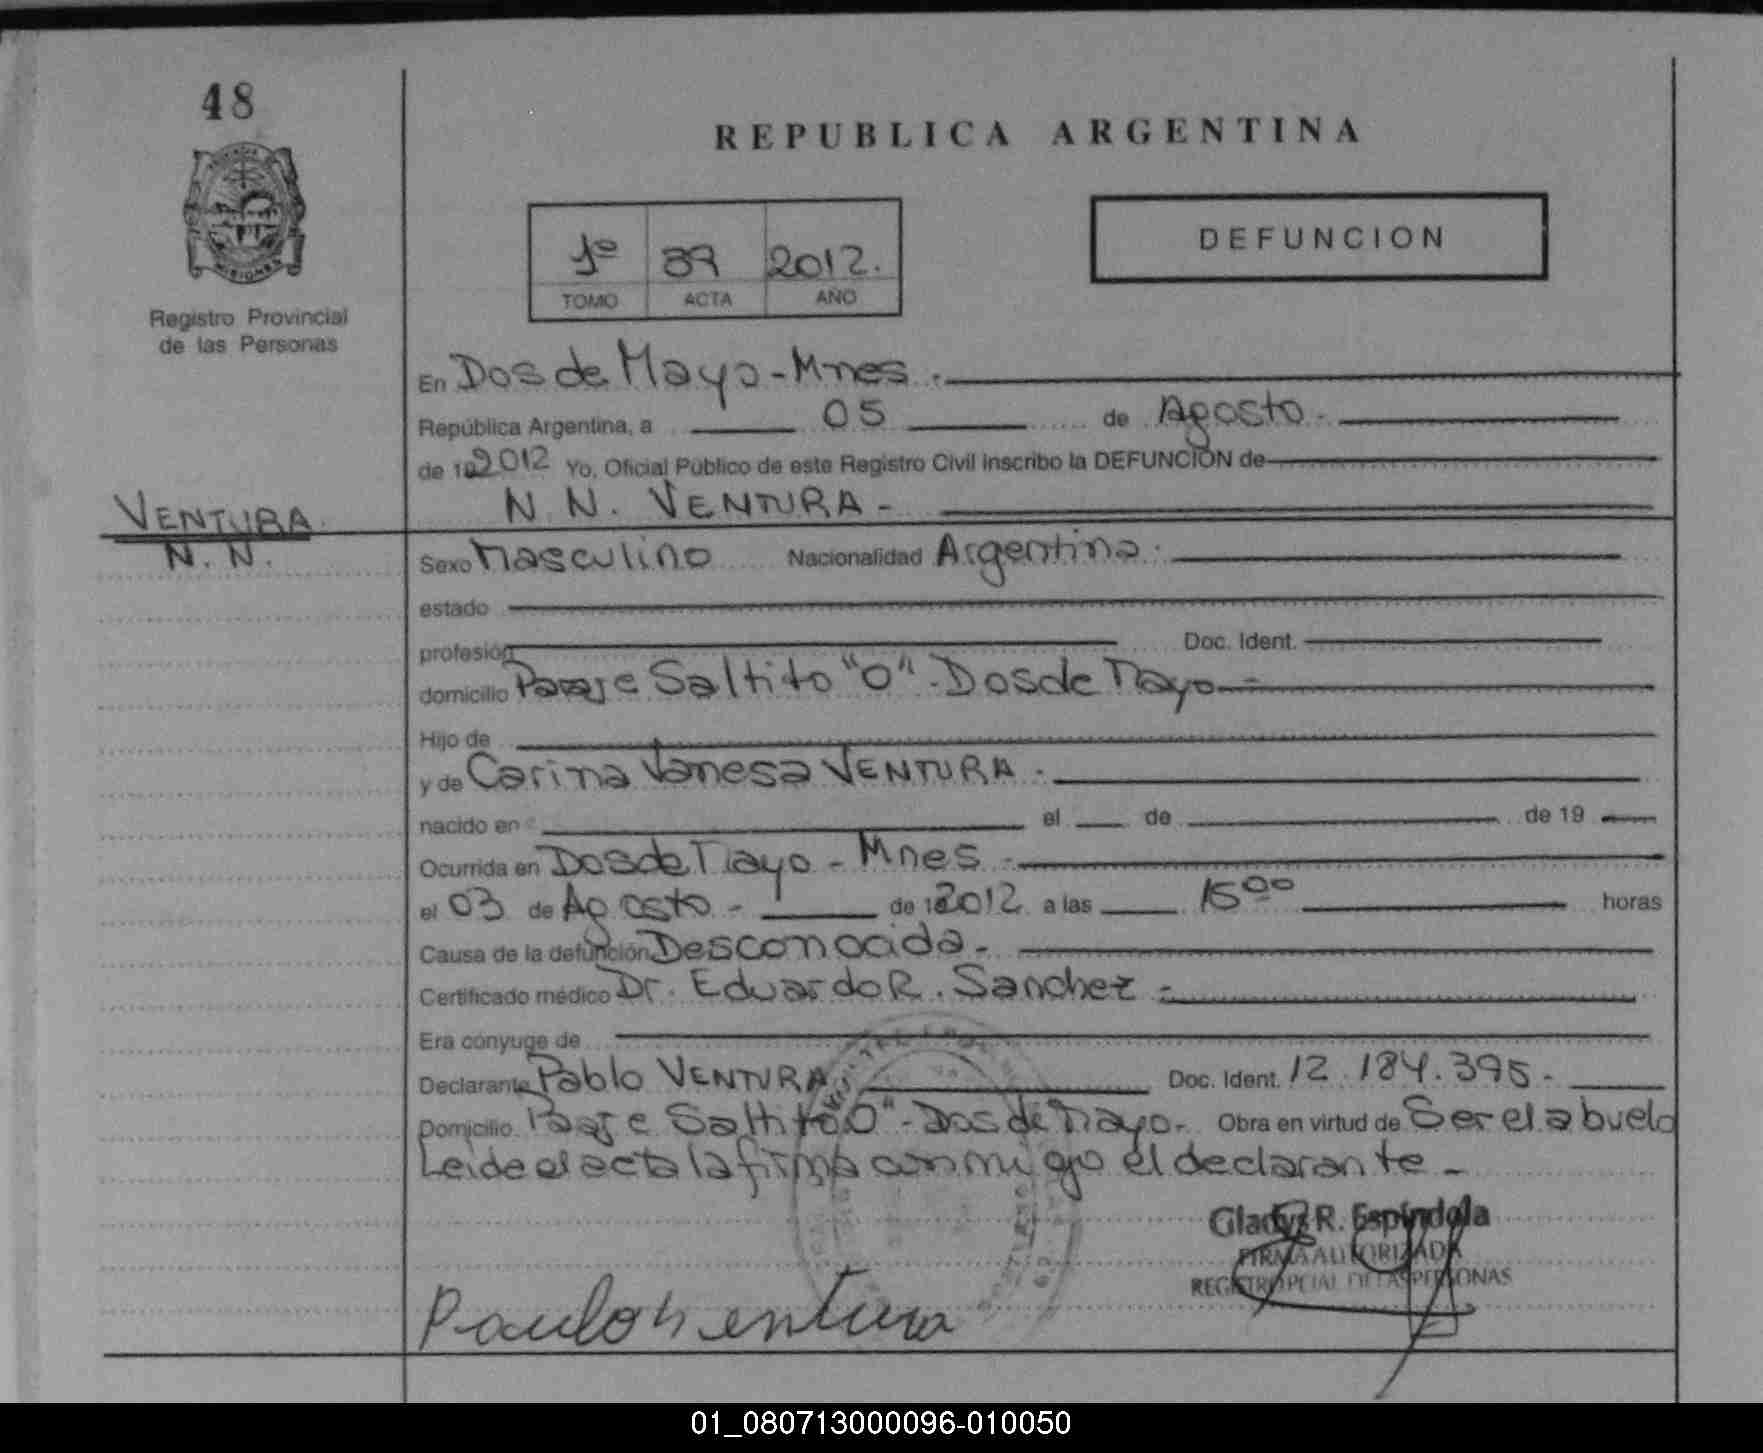 48
REPUBLICA ARGENTINA
1º 39 2012.
TOMO ACTA AÑO
DEFUNCION
MISIONES
Registro Provincial
de las Personas
En Dos de Mayo - Mnes.
República Argentina, a 05 de Agosto.
de 192012 Yo, Oficial Público de este Registro Civil inscribo la DEFUNCIÓN de
VENTURA
N. N.
N. N. VENTURA -
Sexo Masculino Nacionalidad Argentina.
estado
profesión Doc. Ident.
domicilio Paraje Saltito "O" - Dos de Mayo -
Hijo de
y de Carina Vanesa VENTURA.
nacido en el de de 19
Ocurrida en Dos de Mayo - Mnes -
el 03 de Agosto - de 192012 a las 15 00 horas
Causa de la defunción Desconocida -
Certificado médico Dr. Eduardo R. Sanchez -
Era cónyuge de
Declarante Pablo VENTURA Doc. Ident. 12.184.395.-
Domicilio Paraje Saltito "O" - Dos de Mayo - Obra en virtud de Ser el abuelo
Leide el acta la firma conmigo el declarante -
Gladys R. Espíndola
FIRMA AUTORIZADA
REGISTRO PCIAL DE LAS PERSONAS
Paulo Ventura
01_080713000096-010050